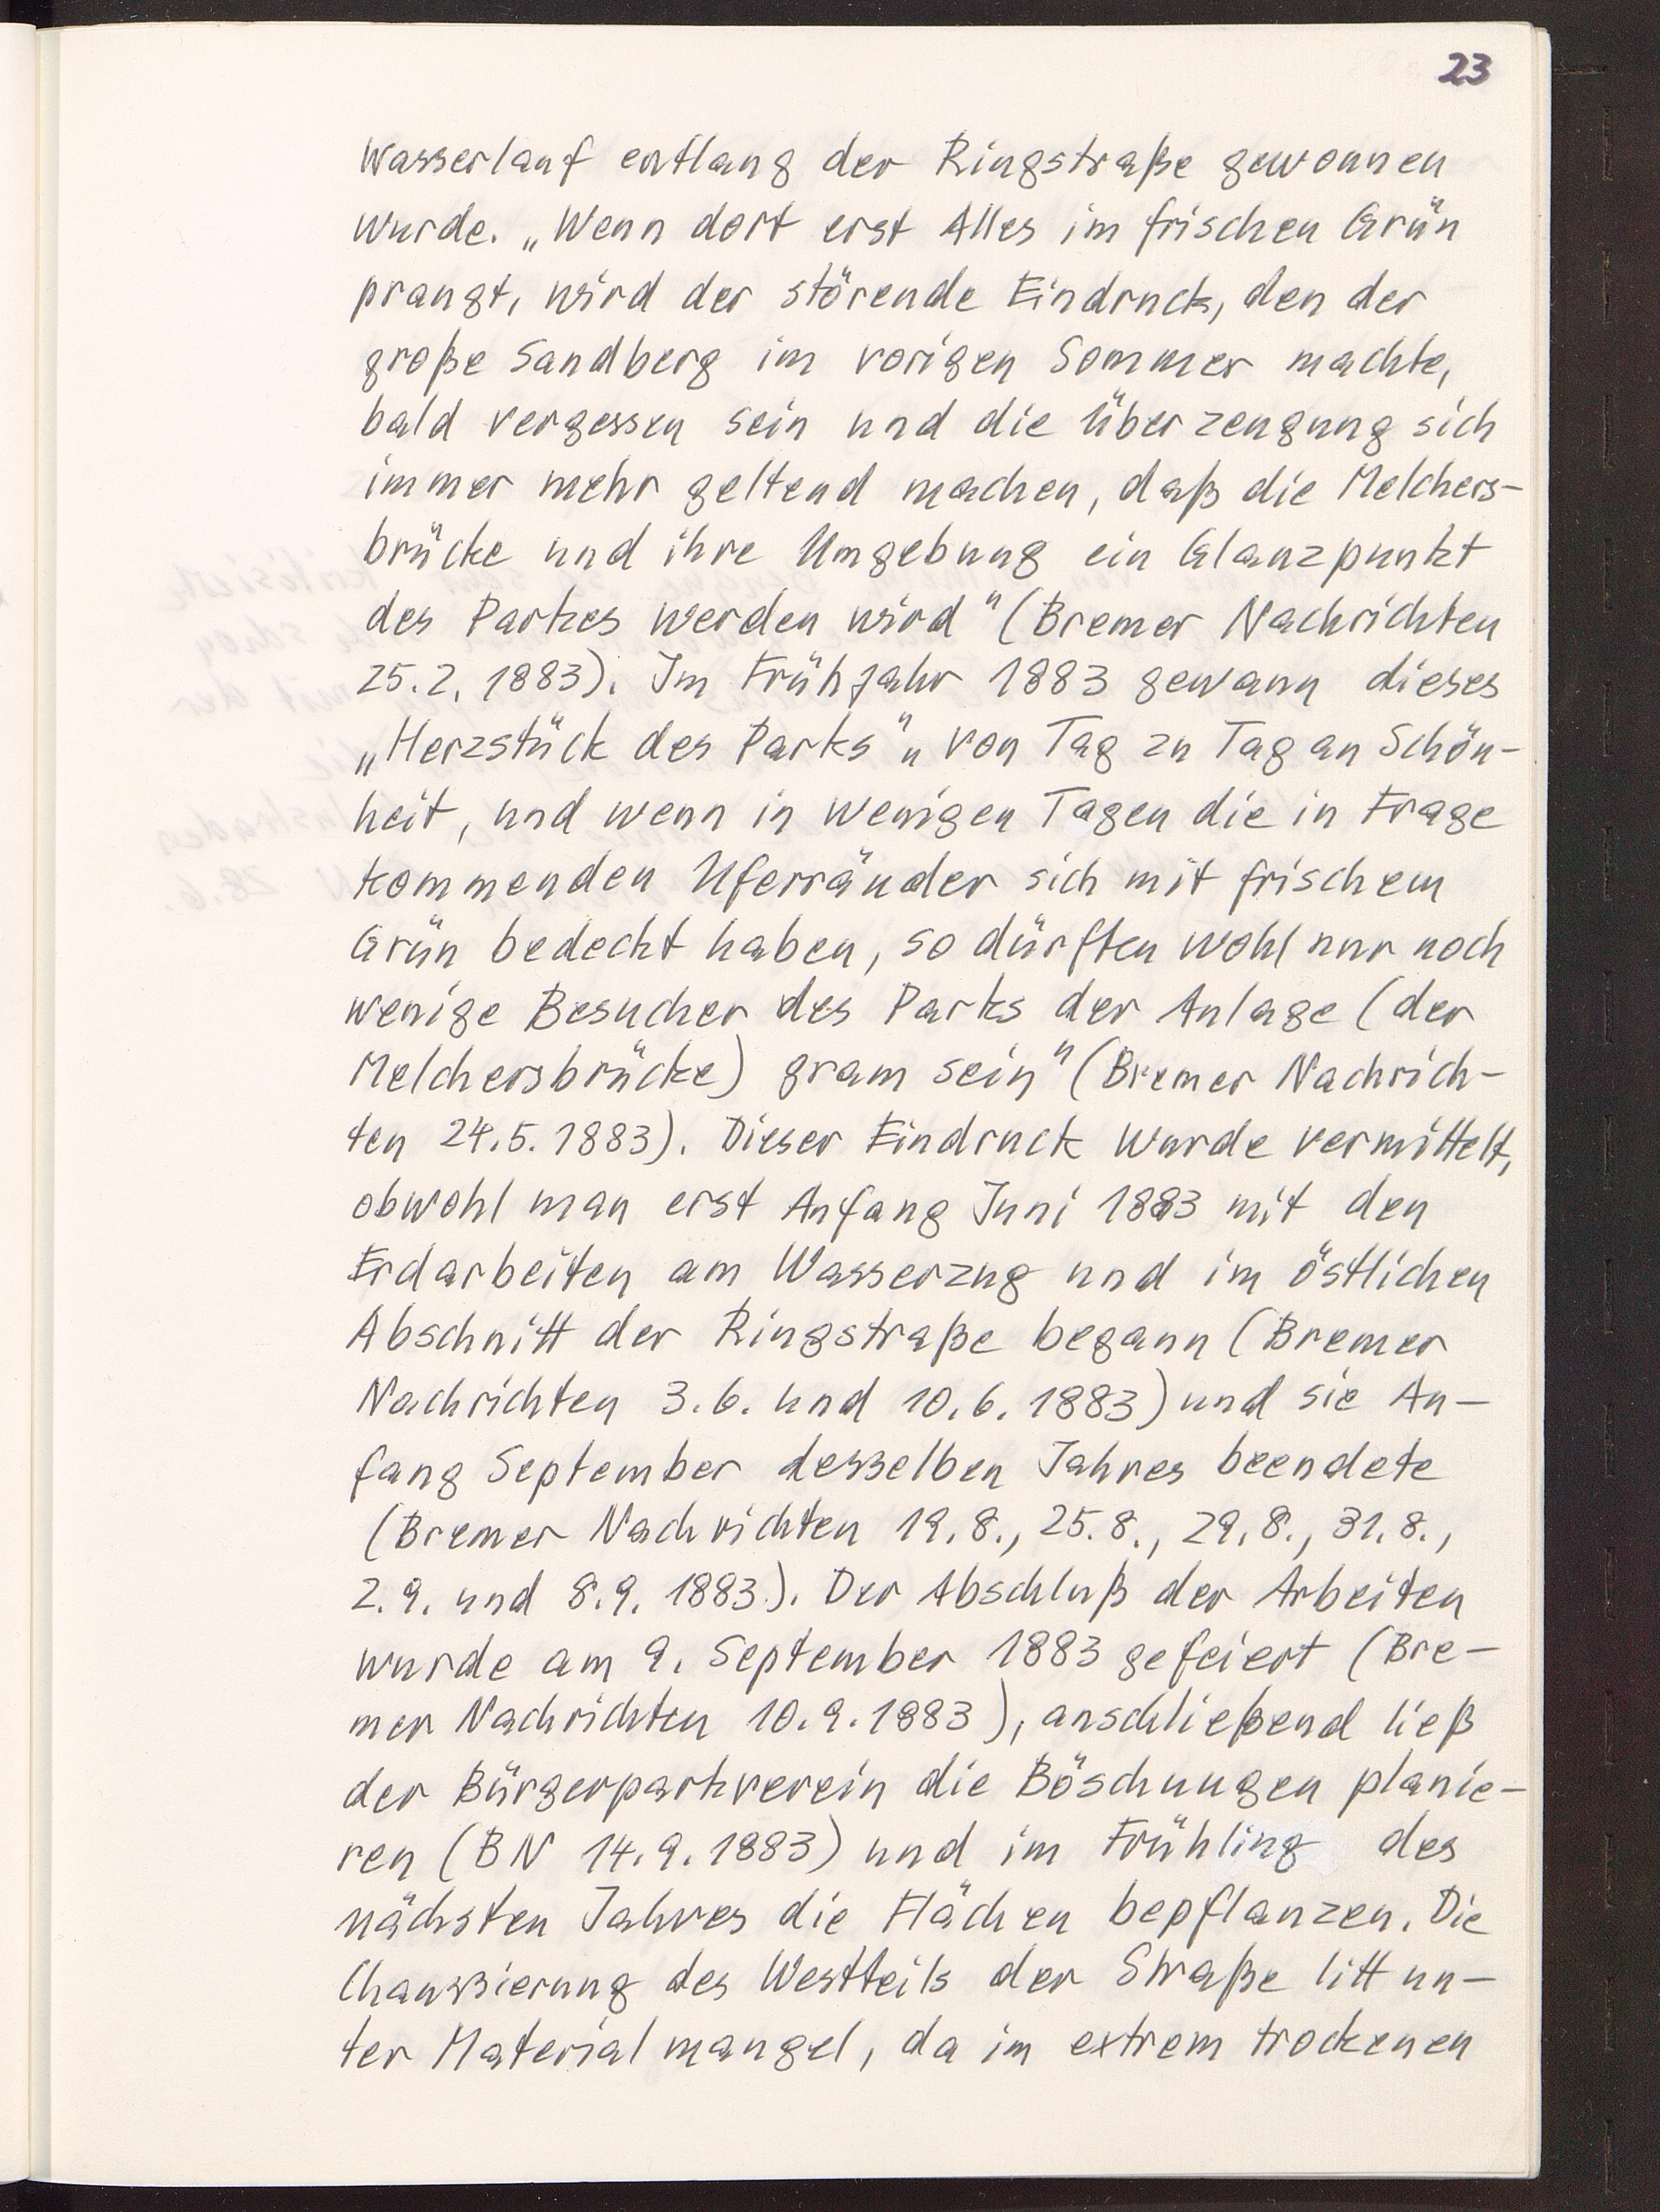 23
Wasserlauf entlang der Ringstraße gewonnen
wurde. „Wenn dort erst Alles im frischen Grün
prangt, wird der störende Eindruck, den der
große Sandberg im vorigen Sommer machte,
bald vergessen sein und die Überzeugung sich
immer mehr geltend machen, daß die Melchers-
brücke und ihre Umgebung ein Glanzpunkt
des Parkes werden wird" (Bremer Nachrichten
25.2.1883). Im Frühjahr 1883 gewann dieses
„Herzstück des Parks" „von Tag zu Tag an Schön-
heit, und wenn in wenigen Tagen die in Frage
kommenden Uferränder sich mit frischem
Grün bedeckt haben, so dürften wohl nur noch
wenige Besucher des Parks der Anlage (der
Melchersbrücke) gram sein" (Bremer Nachrich-
ten 24.5.1883). Dieser Eindruck wurde vermittelt,
obwohl man erst Anfang Juni 1883 mit den
Erdarbeiten am Wasserzug und im östlichen
Abschnitt der Ringstraße begann (Bremer
Nachrichten 3.6. und 10.6.1883) und sie An-
fang September desselben Jahres beendete
(Bremer Nachrichten 19.8., 25.8., 29.8., 31.8.,
2.9. und 8.9.1883). Der Abschluß der Arbeiten
wurde am 9. September 1883 gefeiert (Bre-
mer Nachrichten 10.9.1883), anschließend ließ
der Bürgerparkverein die Böschungen planie-
ren (BN 14.9.1883) und im Frühling des
nächsten Jahres die Flächen bepflanzen. Die
Chaussierung des Westteils der Straße litt un-
ter Materialmangel, da im extrem trockenen